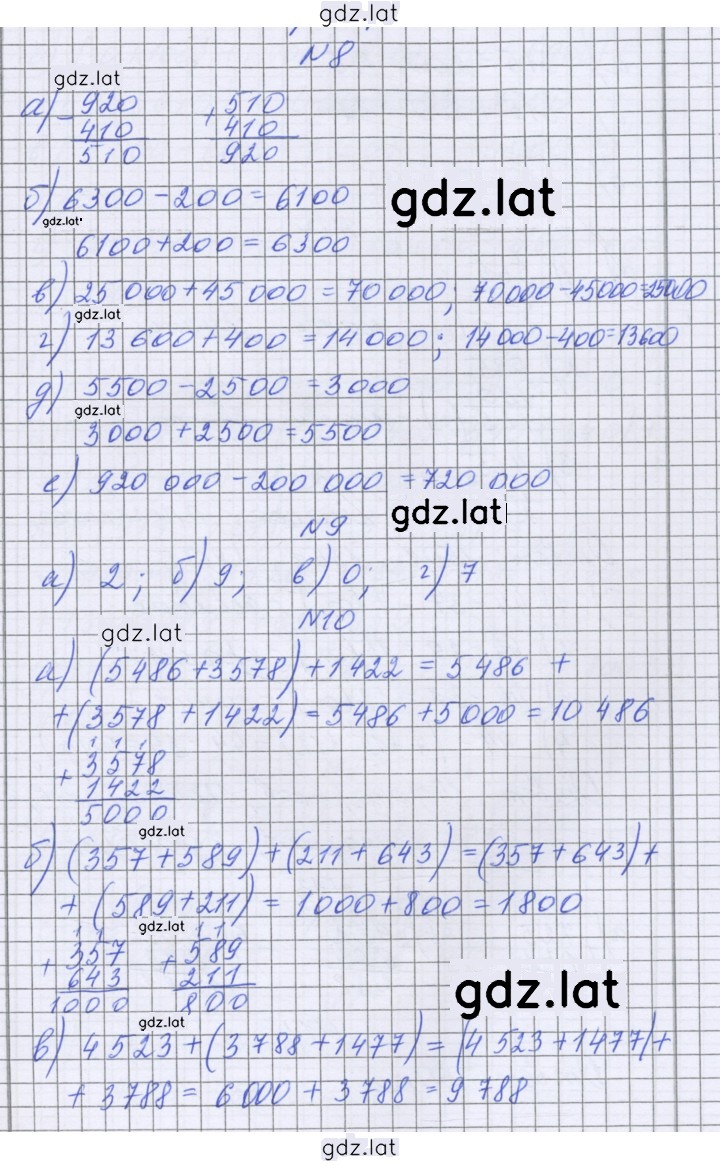 gdz.lat
N8
gdz.lat
а) - 920 + 510
410 410
510 920
б) 6300 - 200 = 6100
gdz.lat
gdz.lat
6100 + 200 = 6300
в) 25 000 + 45 000 = 70 000; 70000 - 45000 = 25000
gdz.lat
г) 13 600 + 400 = 14 000; 14 000 - 400 = 13600
д) 5500 - 2500 = 3000
gdz.lat
3000 + 2500 = 5500
е) 920 000 - 200 000 = 720 000
gdz.lat
N9
а) 2; б) 9; в) 0; г) 7
N10
gdz.lat
а) (5486 + 3578) + 1422 = 5486 +
+ (3578 + 1422) = 5486 + 5000 = 10 486
1 1 1
+ 3578
1422
5000
gdz.lat
б) (357 + 589) + (211 + 643) = (357 + 643) +
+ (589 + 211) = 1000 + 800 = 1800
gdz.lat
1 1 1 1
+ 357 + 589
643 211
1000 800
gdz.lat
gdz.lat
в) 4 523 + (3 788 + 1477) = (4 523 + 1477) +
+ 3788 = 6000 + 3788 = 9 788
gdz.lat